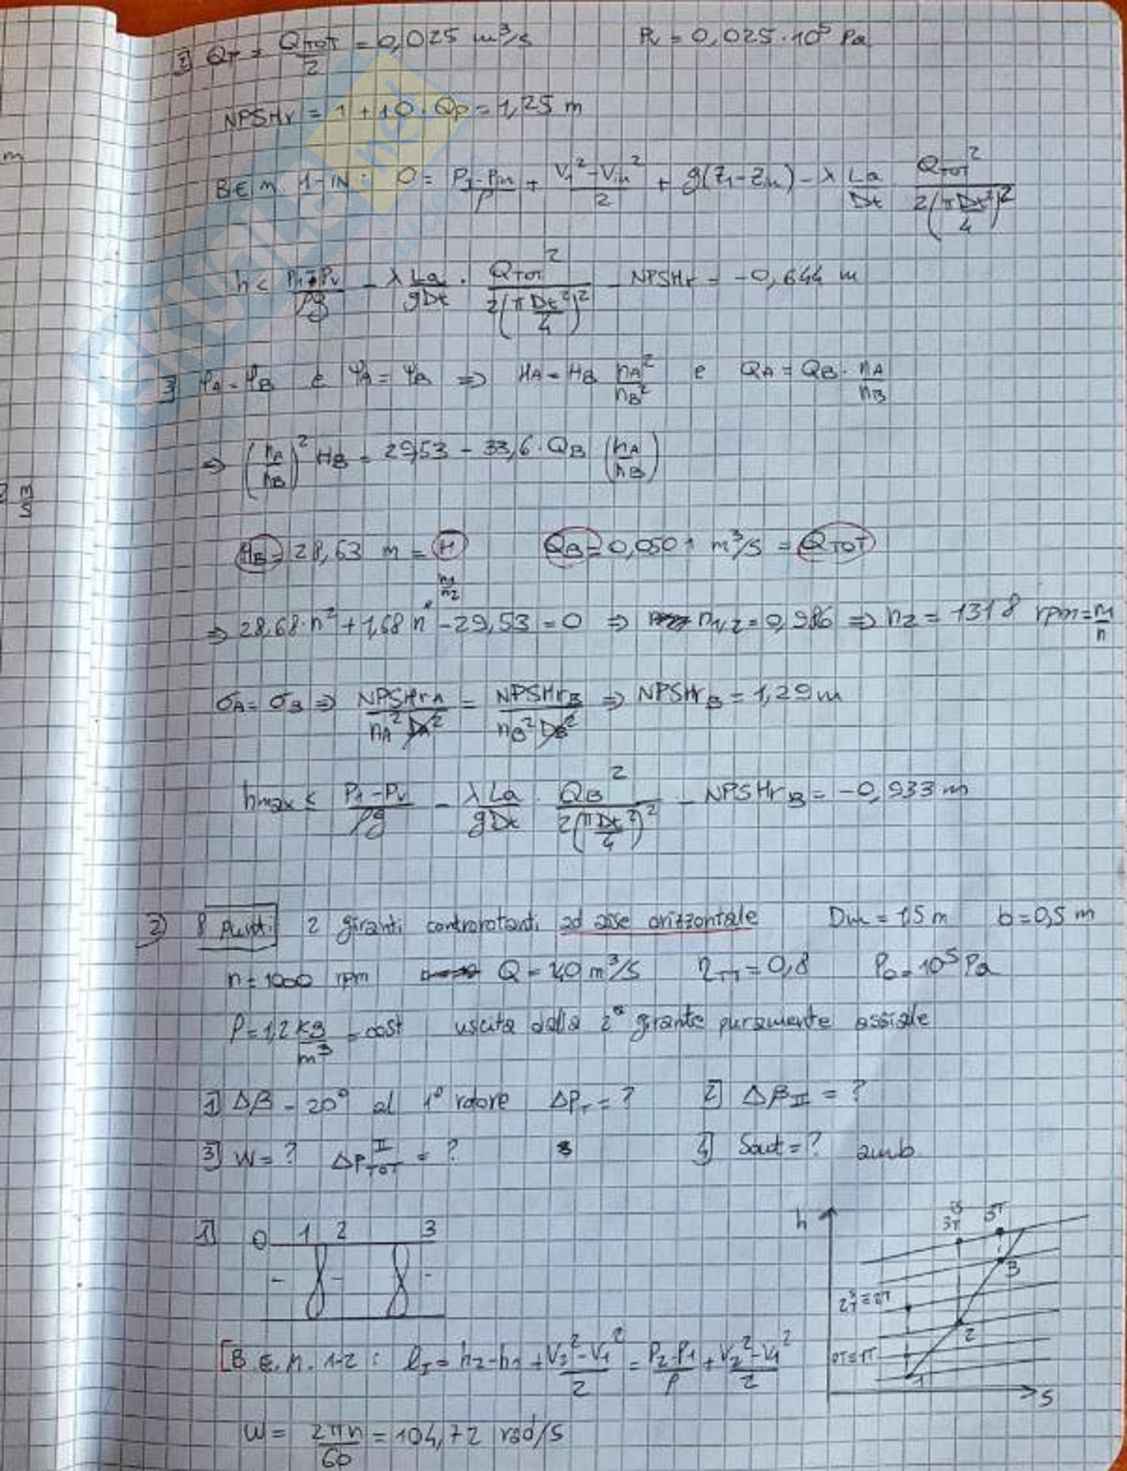 m
2] QT = QTOT/2 = 0,025 m³/s Pv = 0,025·10⁵ Pa
NPSHr = 1 + 10 · Qp = 1,25 m
BEM 1-IN: 0 = (P1-Pin)/ρ + (V1²-Vin²)/2 + g(z1-zin) - λ La/Dt QTOT²/(2(πDt²/4)²)
h < (P1-Pv)/ρg - λLa/gDt · QTOT²/(2(πDt²/4)²) - NPSHr = -0,644 m
3] φA = φB e ψA = ψB ⇒ HA = HB nA²/nB² e QA = QB · nA/nB
⇒ (nA/nB)² HB = 29,53 - 33,6 · QB (nA/nB)
m/s
HB = 28,63 m = H QB = 0,0501 m³/s = QTOT
n1/n2
⇒ 28,68·n² + 1,68 n - 29,53 = 0 ⇒ n1,2 = 0,986 ⇒ n2 = 1318 rpm = m/n
σA = σB ⇒ NPSHrA/(nA² DA²) = NPSHrB/(nB² DB²) ⇒ NPSHrB = 1,29 m
hmax ≤ (P1-Pv)/ρg - λLa/gDt · QB²/(2(πDt²/4)²) - NPSHrB = -0,933 m
2) 8 punti 2 giranti controrotanti ad asse orizzontale Dm = 1,5 m b = 0,5 m
n = 1000 rpm Q = 40 m³/s ηTT = 0,8 P0 = 10⁵ Pa
ρ = 1,2 kg/m³ = cost uscita dalla 2ª girante puramente assiale
1] Δβ = 20° al 1° rotore ΔPT = ? 2] ΔβII = ?
3] W = ? ΔPTOT II = ? 4] Sout = ? amb
1] 0 1 2 3
h 3T 3 2 1 0T≡1T s
[B.E.M. 1-2: lI = h2-h1 + (V2²-V1²)/2 = (P2-P1)/ρ + (V2²-V1²)/2
ω = 2πn/60 = 104,72 rad/s